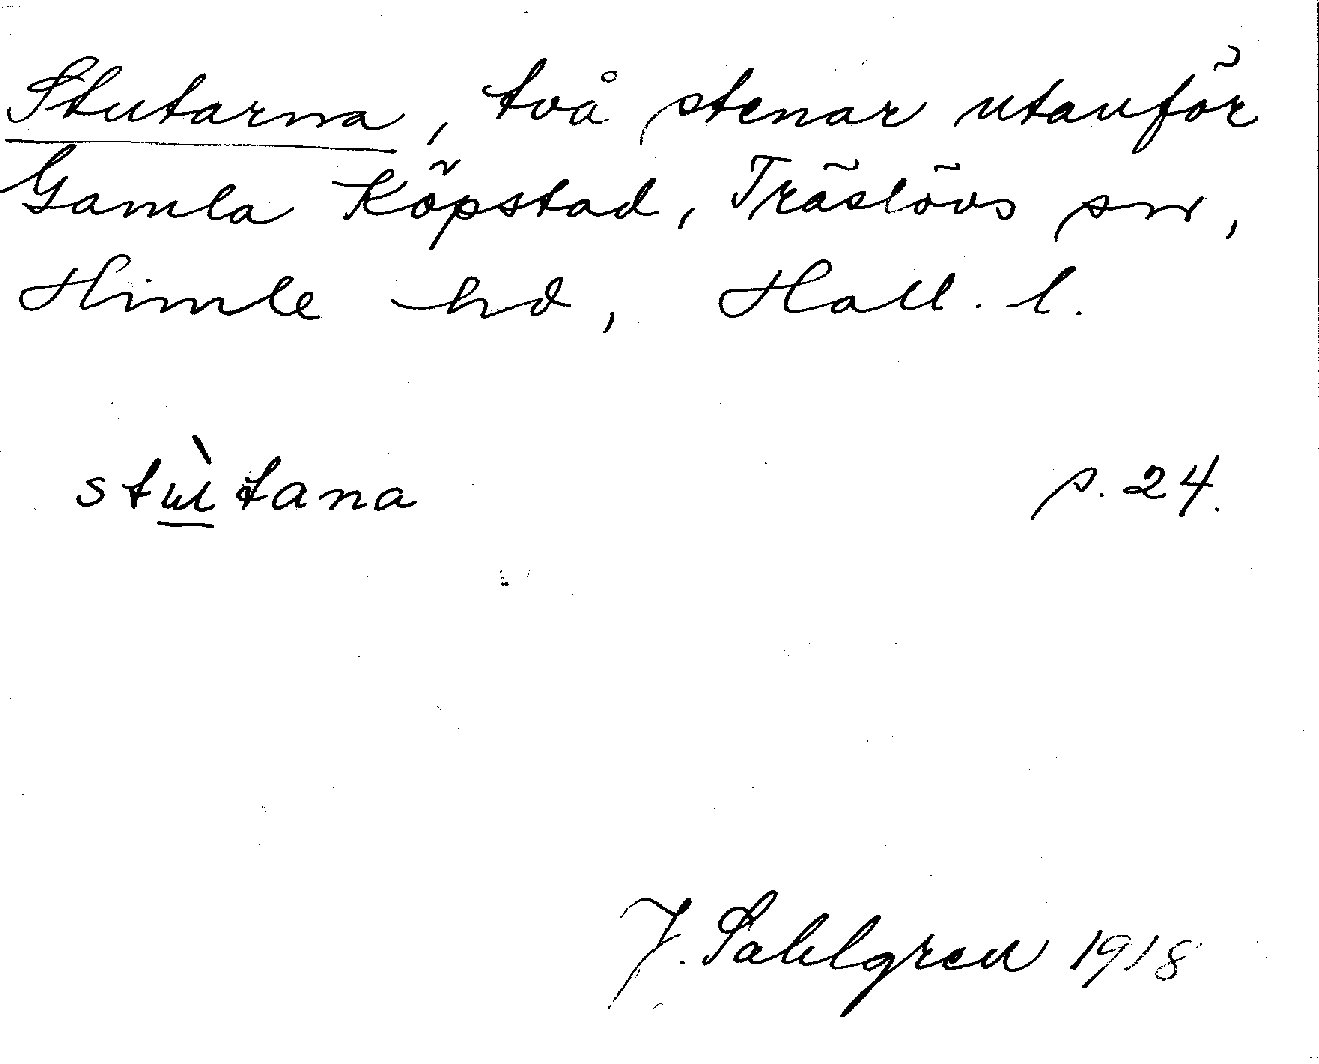 Stutarna, två stenar utanför
Gamla Köpstad, Träslövs sn,
Himle hd, Hall. l.
stɯ̀tana s. 24.
J. Sahlgren 1918